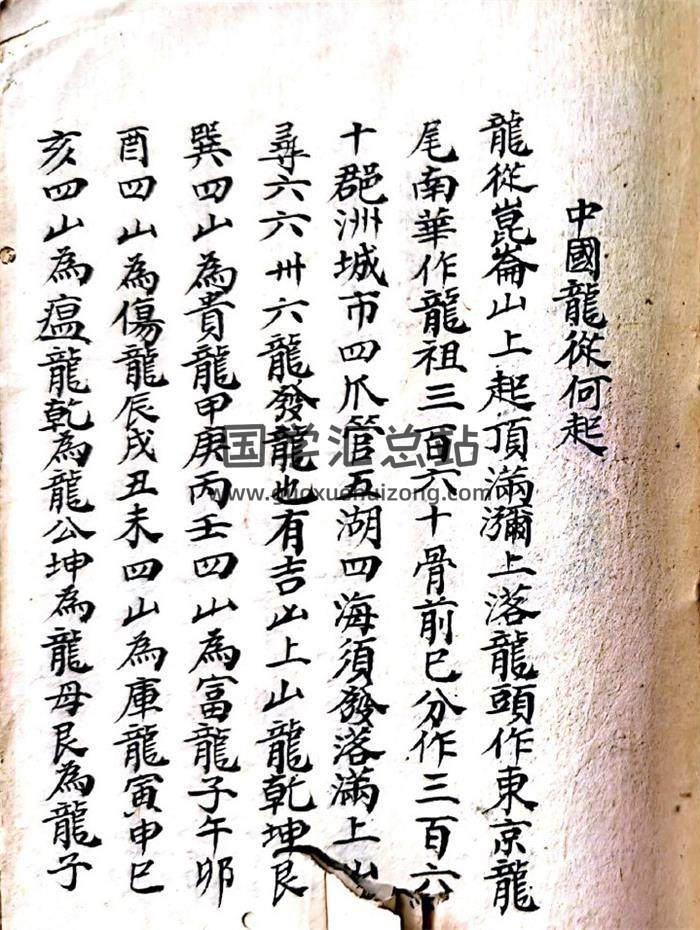 中國龍從何起
龍從崑崙山上起頂滿瀰上落龍頭作東京龍
尾南華作龍祖三百六十骨前已分作三百六
十郡洲城市四爪管五湖四海須發落滿上山
尋六六卅六龍發龍也有吉凶上山龍乾坤艮
巽四山為貴龍甲庚丙壬四山為富龍子午卯
酉四山為傷龍辰戌丑未四山為庫龍寅申巳
亥四山為瘟龍乾為龍公坤為龍母艮為龍子
国学汇总站
www.guoxuehuizong.com